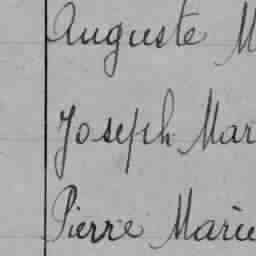 Auguste M
Joseph Mar
Pierre Marie